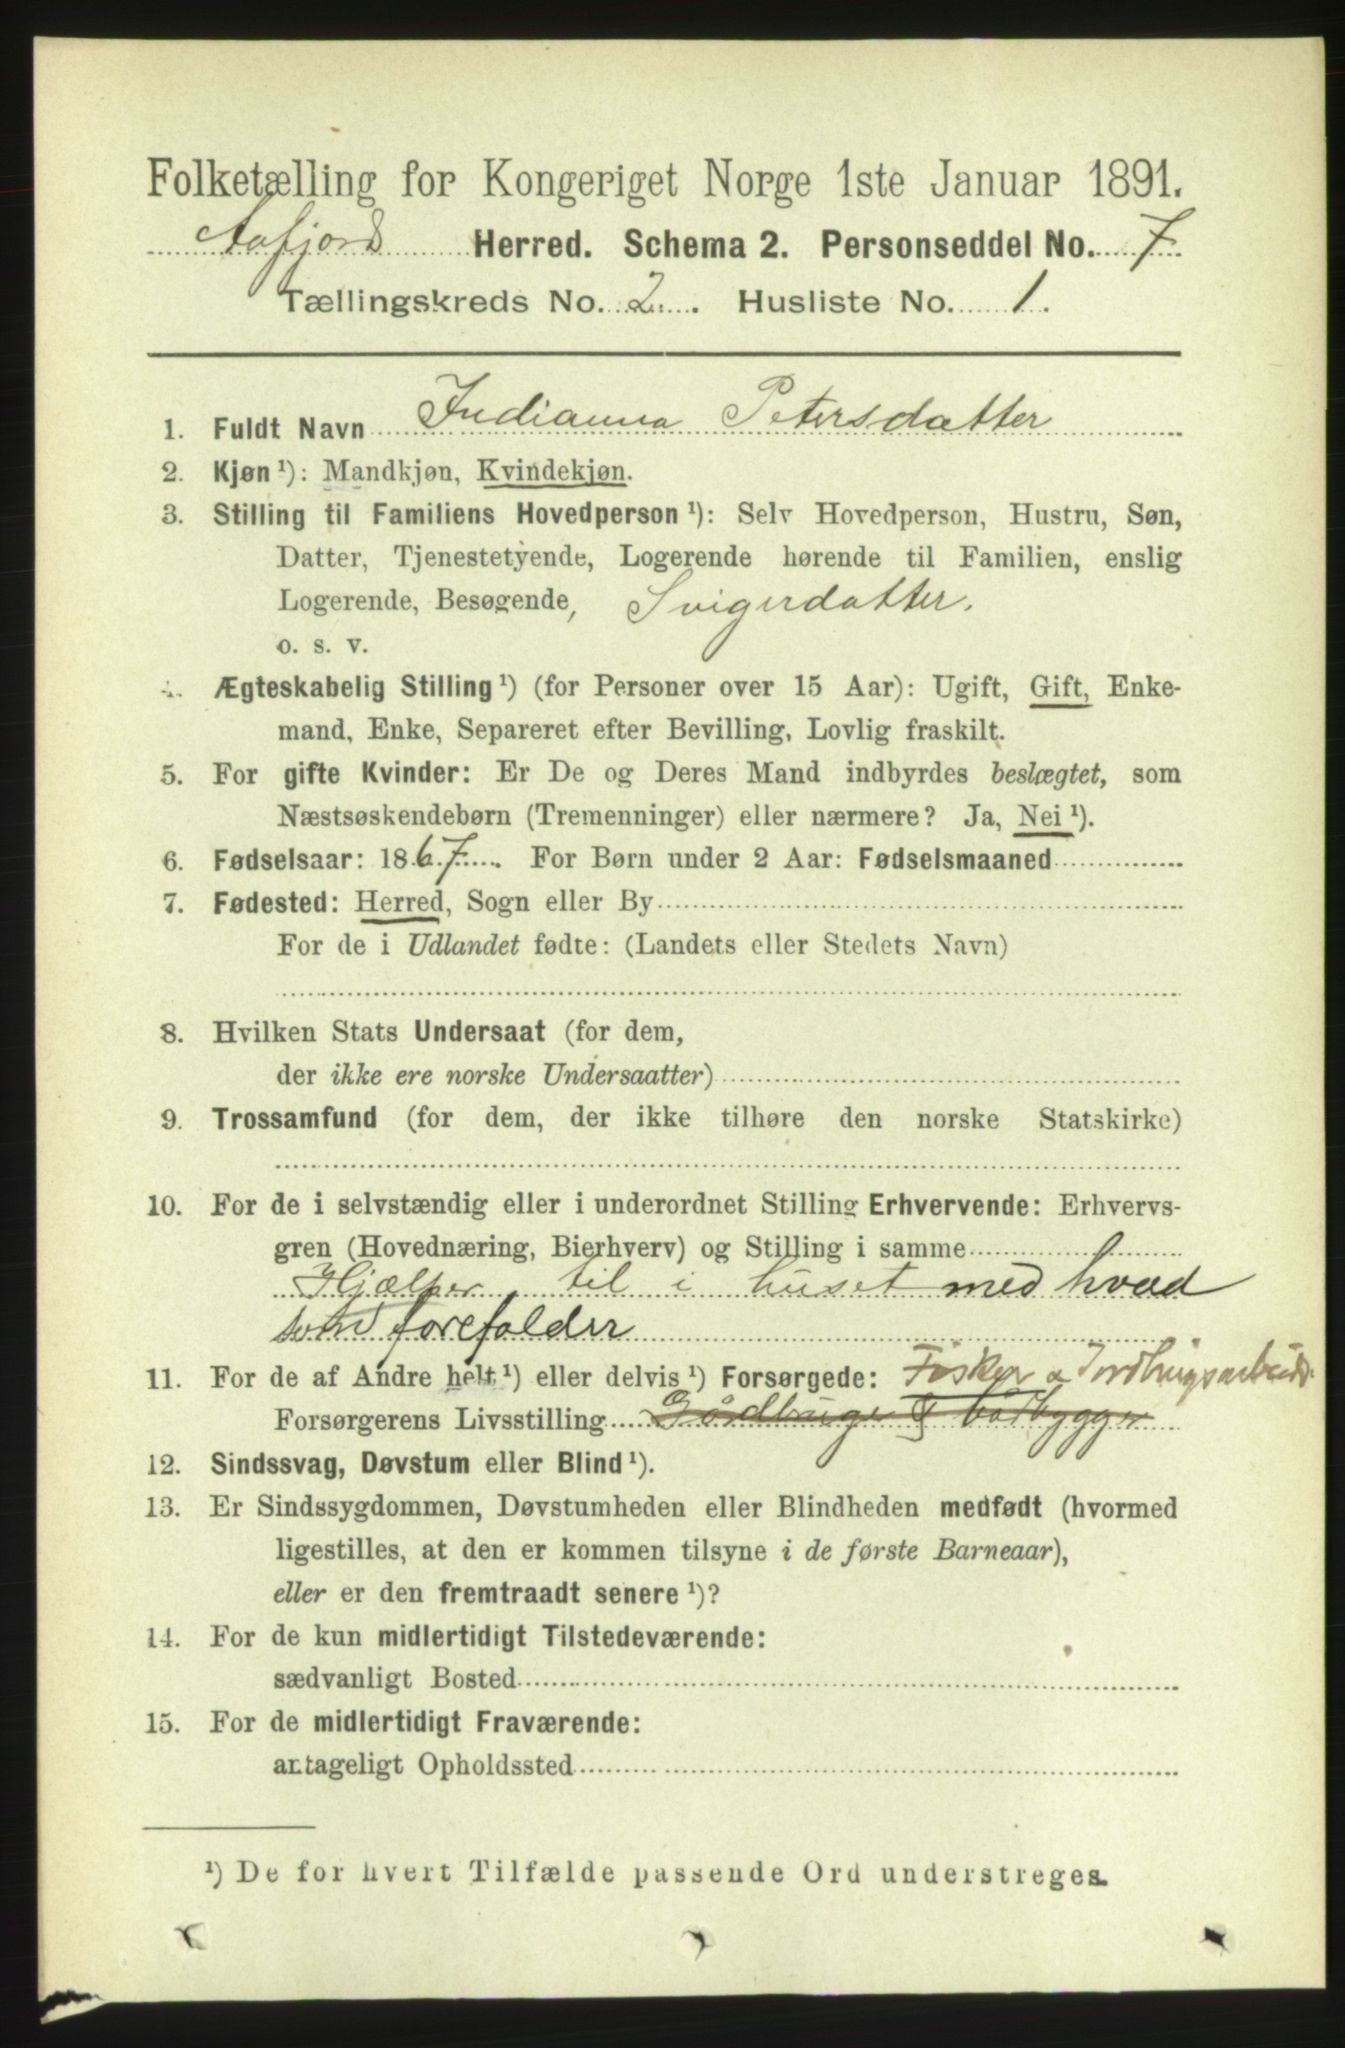 Folketælling for Kongeriget Norge 1ste Januar 1891.
Aafjord Herred. Schema 2. Personseddel No. 7
Tællingskreds No. 2. Husliste No. 1.
1. Fuldt Navn Indianna Petersdatter
2. Kjøn ¹): Mandkjøn, Kvindekjøn.
3. Stilling til Familiens Hovedperson ¹): Selv Hovedperson, Hustru, Søn,
Datter, Tjenestetyende, Logerende hørende til Familien, enslig
Logerende, Besøgende, Svigerdatter.
o. s. v.
4. Ægteskabelig Stilling ¹) (for Personer over 15 Aar): Ugift, Gift, Enke-
mand, Enke, Separeret efter Bevilling, Lovlig fraskilt.
5. For gifte Kvinder: Er De og Deres Mand indbyrdes beslægtet, som
Næstsøskendebørn (Tremenninger) eller nærmere? Ja, Nei ¹).
6. Fødselsaar: 1867. For Børn under 2 Aar: Fødselsmaaned
7. Fødested: Herred, Sogn eller By
For de i Udlandet fødte: (Landets eller Stedets Navn)
8. Hvilken Stats Undersaat (for dem,
der ikke ere norske Undersaatter)
9. Trossamfund (for dem, der ikke tilhøre den norske Statskirke)
10. For de i selvstændig eller i underordnet Stilling Erhvervende: Erhvervs-
gren (Hovednæring, Bierhverv) og Stilling i samme
Hjælper til i huset med hvad
som forefalder
11. For de af Andre helt ¹) eller delvis ¹) Forsørgede: Fisker & Jordbrugsarbeid.
Forsørgerens Livsstilling Gårdbruger & båtbygger
12. Sindssvag, Døvstum eller Blind ¹).
13. Er Sindssygdommen, Døvstumheden eller Blindheden medfødt (hvormed
ligestilles, at den er kommen tilsyne i de første Barneaar),
eller er den fremtraadt senere ¹)?
14. For de kun midlertidigt Tilstedeværende:
sædvanligt Bosted
15. For de midlertidigt Fraværende:
antageligt Opholdssted
¹) De for hvert Tilfælde passende Ord understreges.